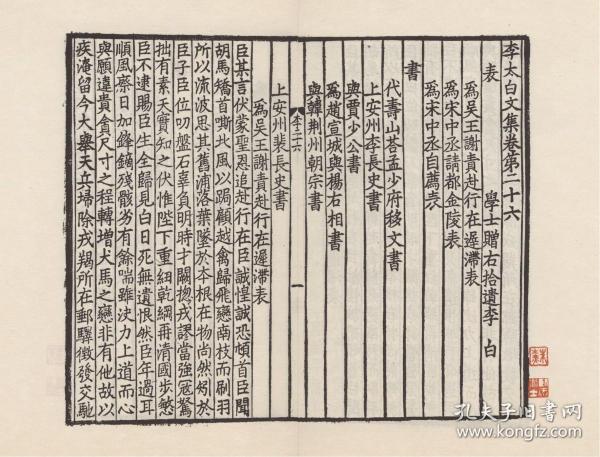 李太白文集卷第二十六
學士贈右拾遺李白
表
為吳王謝責赴行在遲滯表
為宋中丞請都金陵表
為宋中丞自薦表
書
代壽山荅孟少府移文書
上安州李長史書
與賈少公書
為趙宣城與楊右相書
與韓荆州朝宗書
上安州裴長史書
李二六
一
為吳王謝責赴行在遲滯表
臣某言伏蒙聖恩追赴行在臣誠惶誠恐頓首臣聞
胡馬矯首嘶北風以跼顧越禽歸飛戀南枝而刷羽
所以流波思其舊浦落葉墜於本根在物尚然矧於
臣子臣位叨盤石辜負明時才闕揔戎謬當強寇驚
拙有素天實知之伏惟陛下重紐乾綱再清國步愍
臣不逮賜臣生全歸見白日死無遺恨然臣年過耳
順風瘵日加鋒鏑殘骸劣有餘喘雖決力上道而心
與願違貴貪尺寸之程轉增犬馬之戀非有他故以
疾淹留今大舉天兵掃除戎羯所在郵驛徵發交馳
孔夫子旧書网
www.kongfz.com